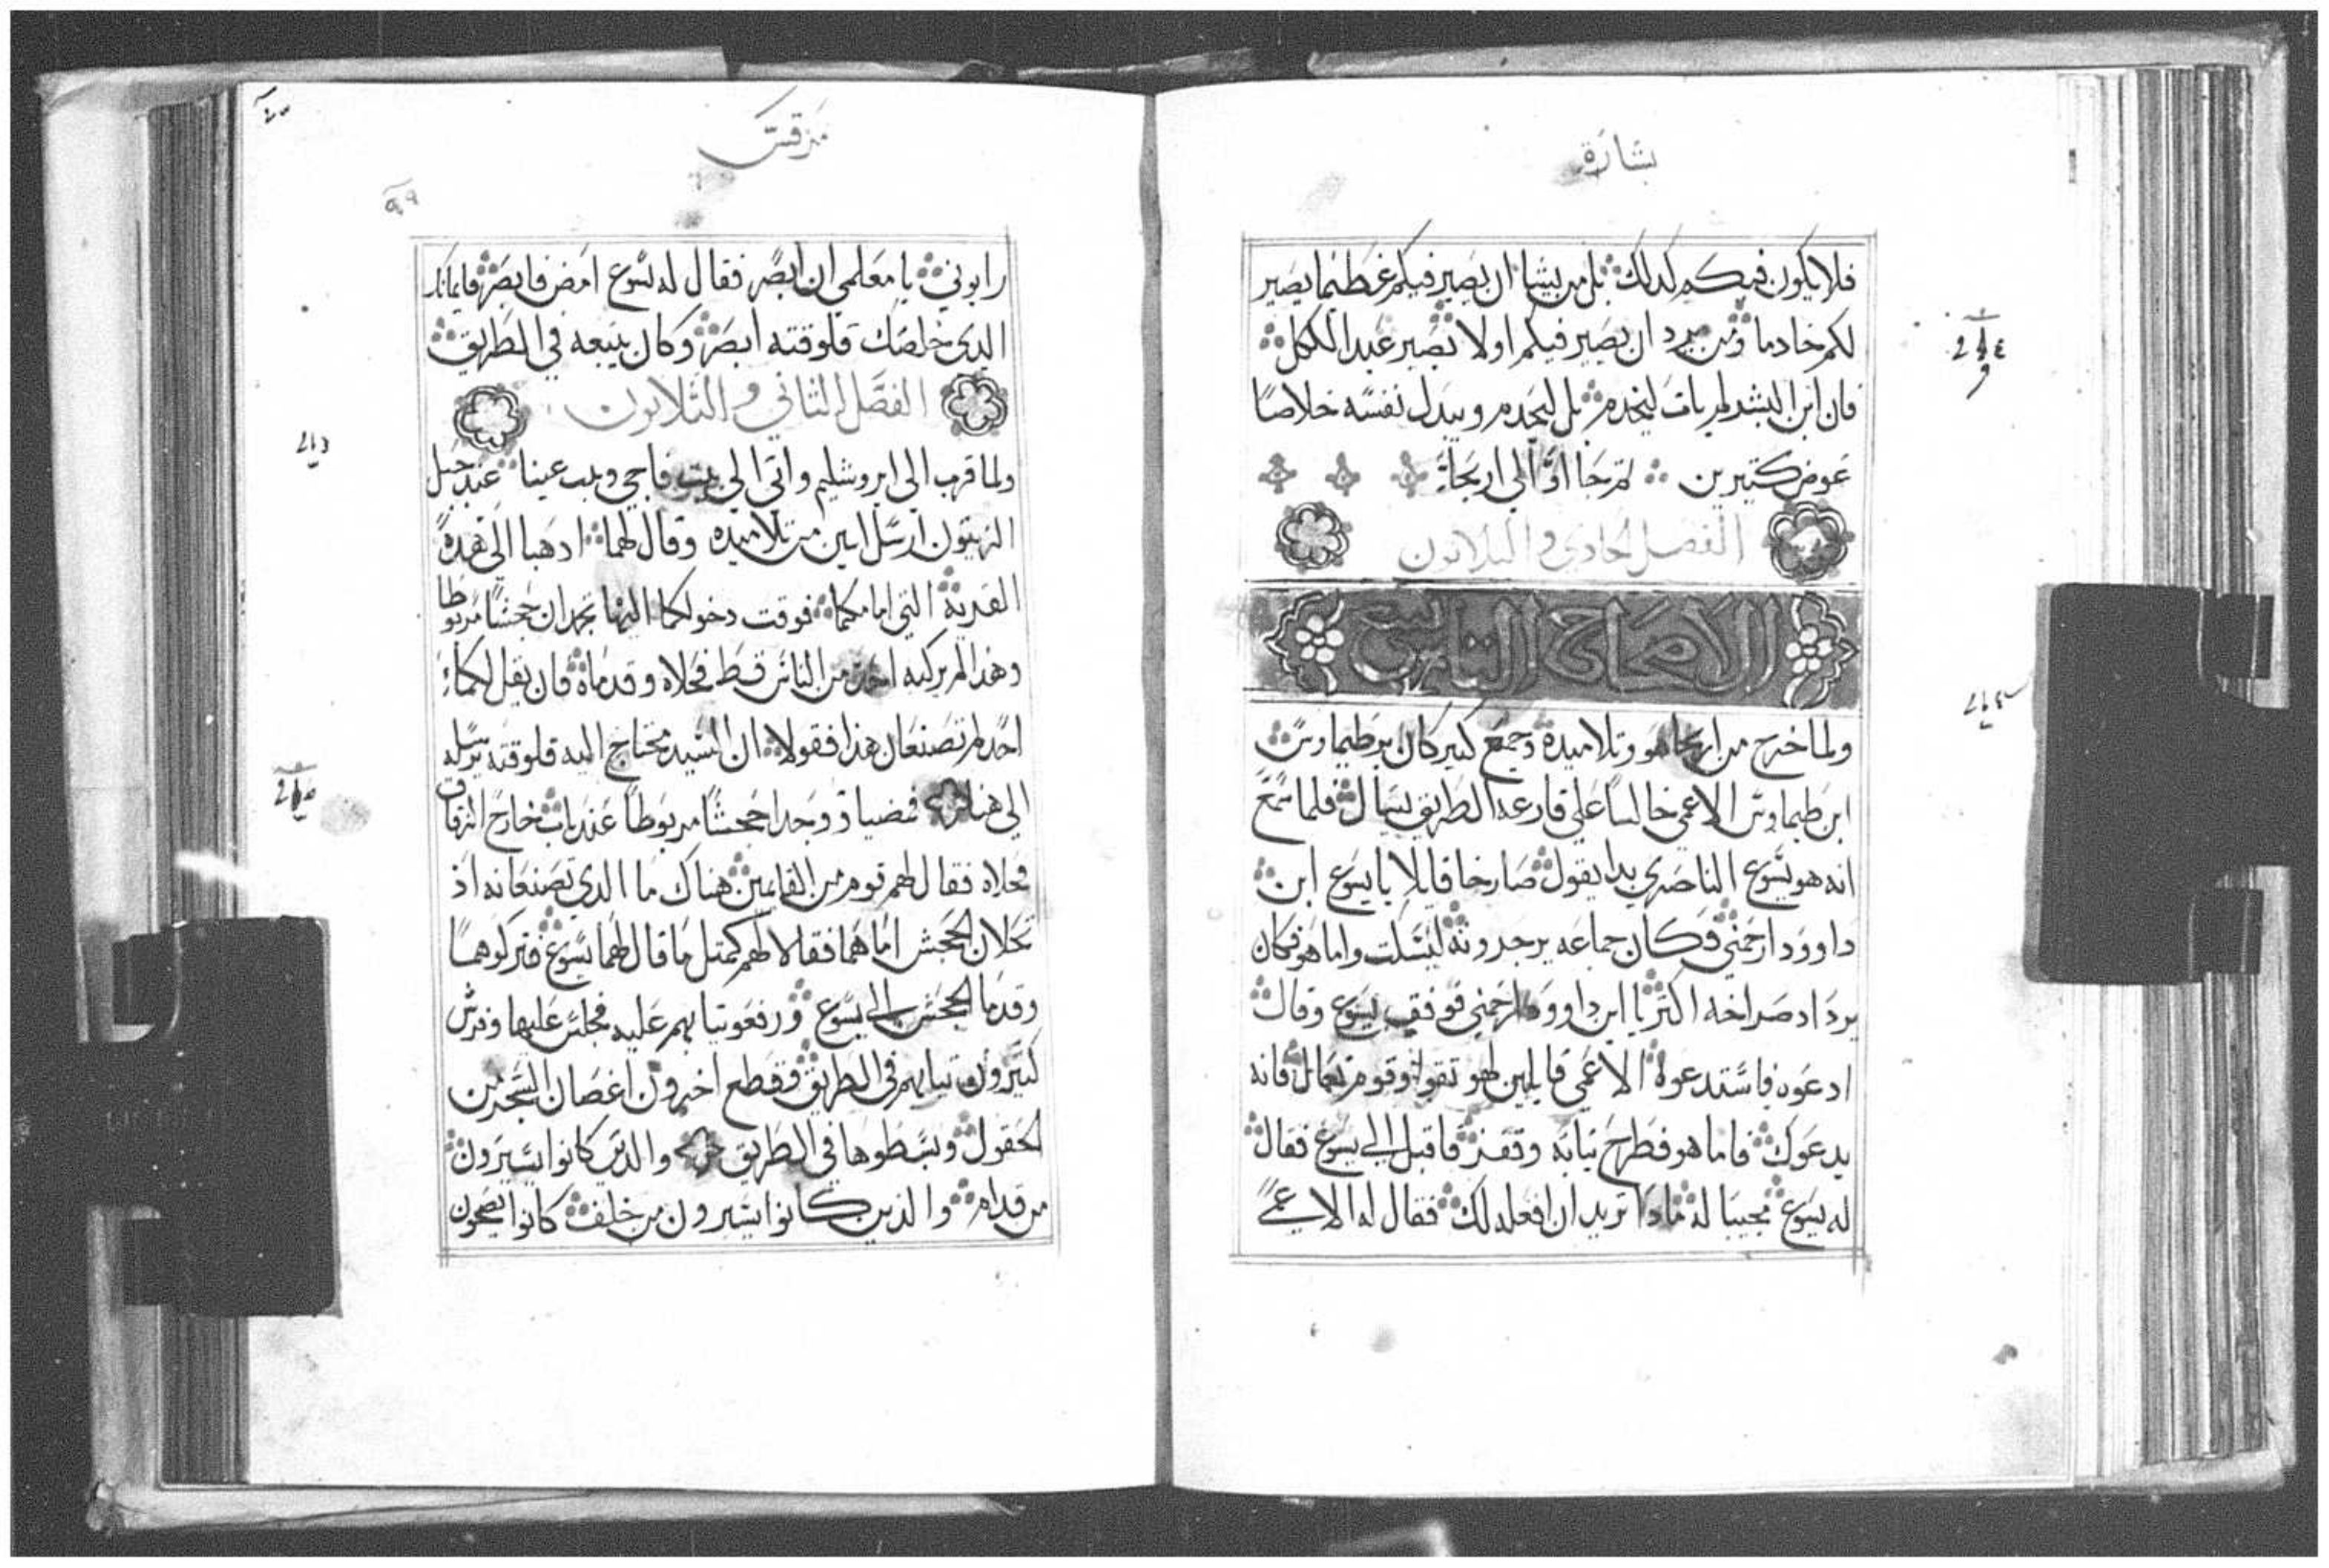 بشارة
فلا يكون فيكم كدلك بل من يشا ان يصير فيكم عظيما يصير
لكم خادما ومن يريد ان يصير فيكم اولا يصير عبد الكل
فان ابن البشر لم يات ليخدم بل ليخدم ويبدل نفسه خلاصا
عوض كتيرين تم جااوا الي اريحا
الفصل الحادي والتلاتون
الاصحاح التاسع
ولما خرج من اريحا هو وتلاميده وجمع كبير كان برطيماوس
ابن طيماوس الاعمي جالسا علي قارعه الطريق يسال فلما سمع
انه هو يسوع الناصري بدا يقول صارخا قايلا يا يسوع ابن
داوود ارحمني وكان جماعه يزجرونه ليسكت واما هو فكان
يزداد صراخه اكتر يا ابن داوود ارحمني فوقف يسوع وقال
ادعوه فاستدعوا الاعمي قايلين لهو تقوا وقوم تعال فانه
يدعوك فاما هو فطرح تيابه وقفز فاقبل الي يسوع فقال
له يسوع مجيبا له مادا تريد ان افعله لك فقال له الاعمي
مرقس
٩٩
رابوني يا معلمي ان ابصر فقال له يسوع امض فابصر فايمانك
الدي خلصك فلوقته ابصر وكان يتبعه في الطريق
الفصل الثاني والثلاثون
ولما قرب الي ايروشليم واتي الي بيت فاجي وبيت عينا عند جبل
الزيتون ارسل اتنين من تلاميده وقال لهما ادهبا الي هده
القرية التي امامكما فوقت دخولكما اليها تجدان جحشا مربوطا
وهدا لم يركبه احد من الناس قط فحلاه وقدماه فان يقل لكما
احد لم تصنعان هدا فقولا ان السيد محتاج اليه فلوقته يرسله
الي هنا فمضيا ووجدا جحشا مربوطا عند باب خارج الزقاق
فحلاه فقال لهم قوم من القايمين هناك ما الدي تصنعانه اذ
تحلان الجحش اما هما فقالا لهم كمتل ما قال لهما يسوع فتركوهما
وقدما الجحش الي يسوع ورفعو تيابهم عليه فجلس عليها وفرش
كتيرون تيابهم في الطريق وقطع اخرون اغصان الشجر من
الحقول وبسطوها في الطريق والدين كانوا يسيرون
من قدام والذين كانوا يسيرون من خلف كانوا يصيحون